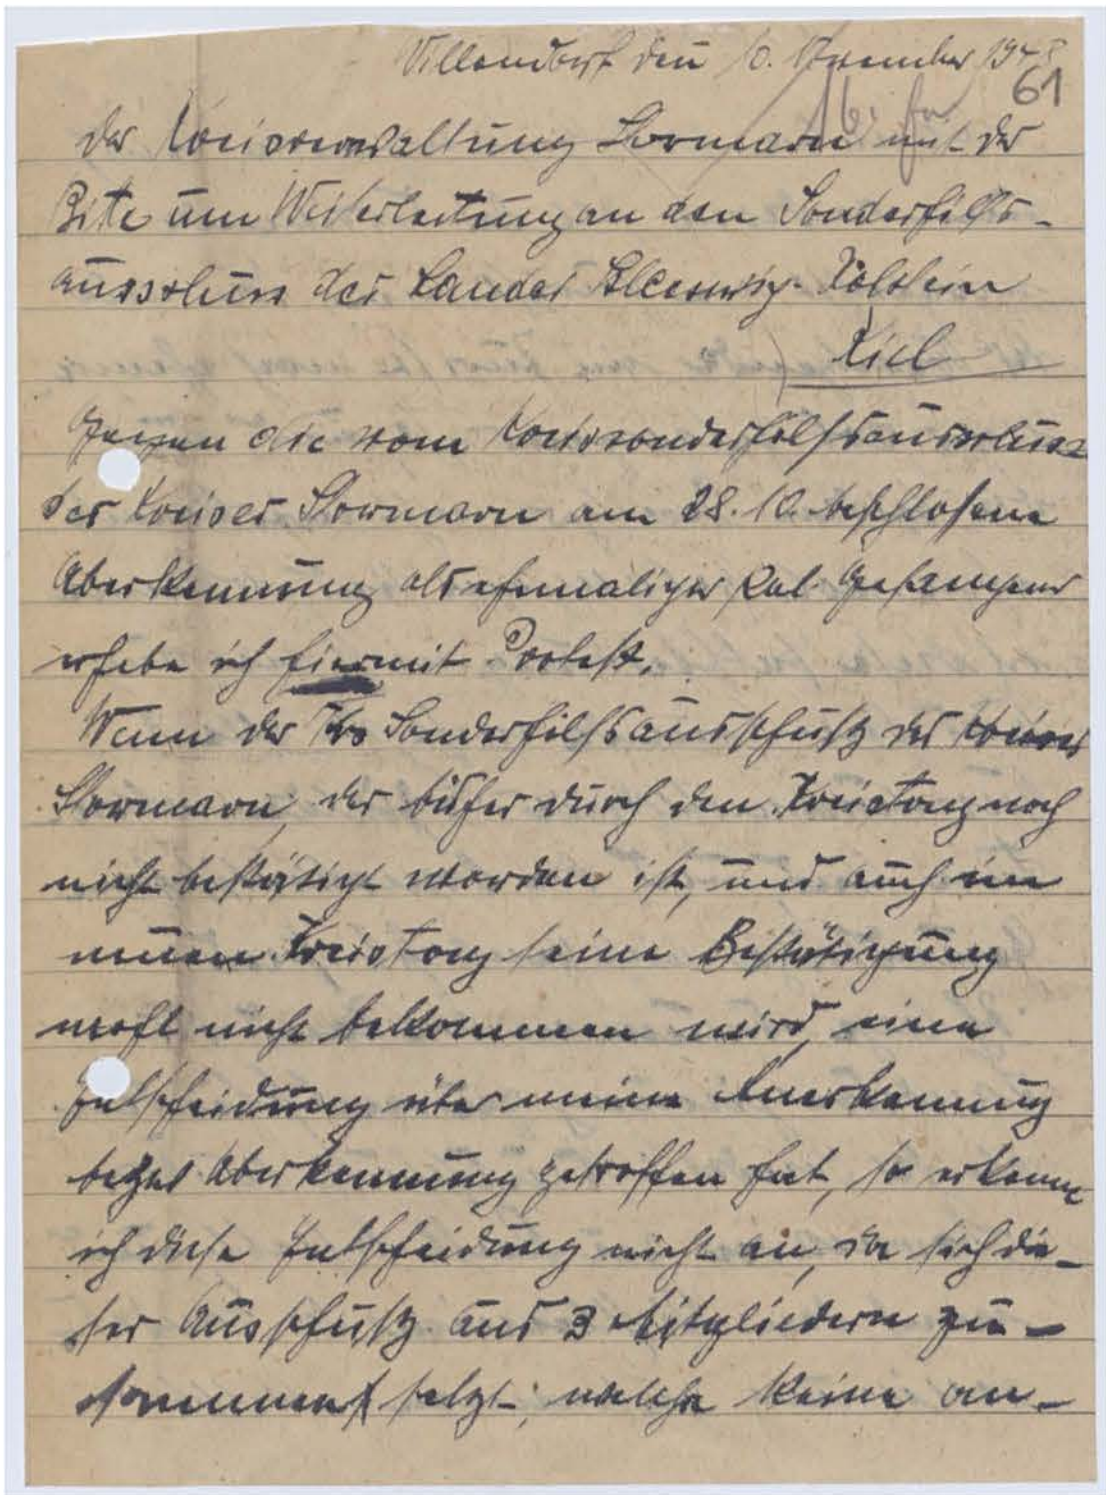 den 10. November 1948
61
der Kreisverwaltung Stormarn mit der
Bitte um Weiterleitung an den Sonderhilfs-
ausschuss des Landes Schleswig-Holstein
Kiel
Gegen die vom Kreissonderhilfsausschuss
des Kreises Stormarn am 28.10. beschlosene
Aberkennung als ehemaliger Pol. Gefangener
erhebe ich hiermit Protest.
Wenn der Krs Sonderhilfsausschuß des Kreises
Stormarn, der bisher durch den Kreistag noch
nicht bestätigt worden ist, und auch im
neuen Kreistag seine Bestätigung
wohl nicht bekommen wird, eine
Entscheidung über meine Anerkennung
bezw Aberkennung getroffen hat, so erkenne
ich diese Entscheidung nicht an, da sich die-
ser Ausschuß aus 3 Mitgliedern zu-
sammen setzt, welche keine an-